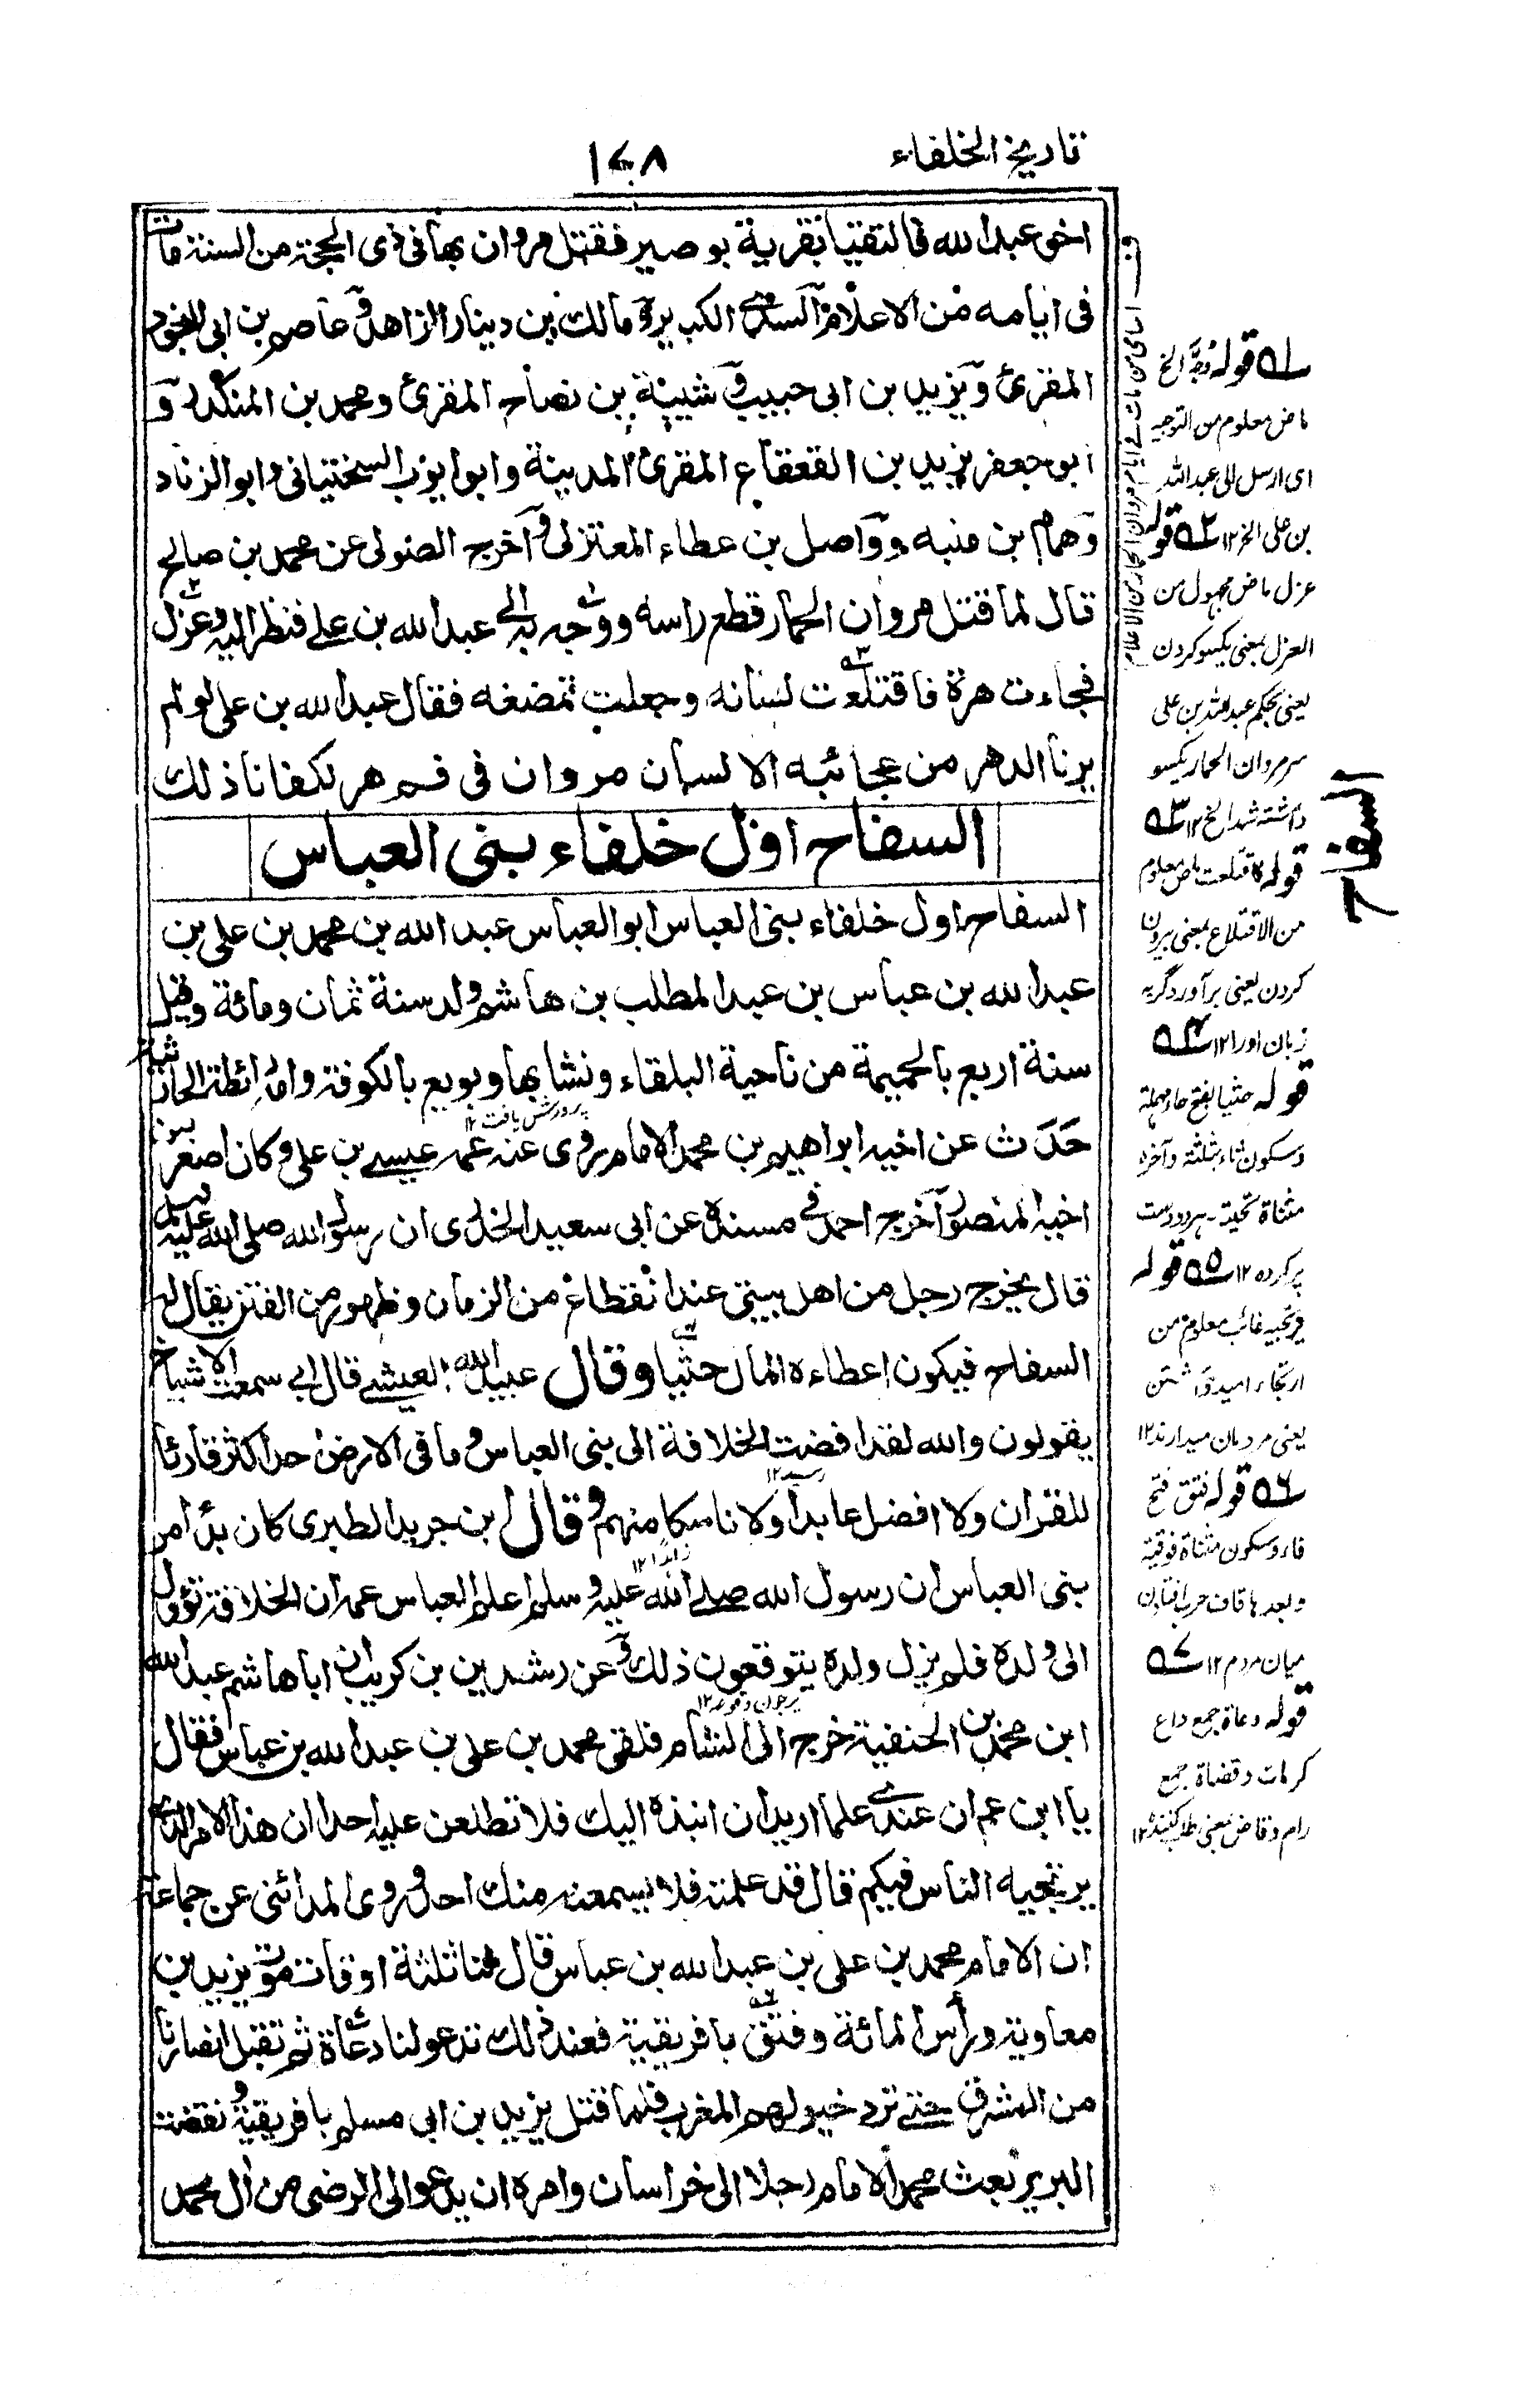 تاريخ الخلفاء
١٧٨
اخو عبد الله فالتقيا بقرية بوصير فقتل مروان بها في ذي الحجة من السنة مات
في ايامه من الاعلام السدي الكبير و مالك بن دينار الزاهد و عاصم بن ابي النجود
المقرئ و يزيد بن ابي حبيب و شيبة بن نصاح المقرئ و محمد بن المنكدر و
ابو جعفر يزيد بن القعقاع المقرئ المدينة و ابو ايوب السختياني و ابو الزناد
و همام بن منبه و واصل بن عطاء المعتزلي و آخرج الصولي عن محمد بن صالح
قال لما قتل مروان الحمار قطع راسه و وجه به الى عبد الله بن علي فنظر اليه و عزل
فجاءت هرة فاقتلعت لسانه و جعلت تمضغه فقال عبد الله بن علي لو لم
يرنا الدهر من عجائبه الا لسان مروان في فم هر لكفانا ذلك
السفاح اول خلفاء بنى العباس
السفاح اول خلفاء بنى العباس ابو العباس عبد الله بن محمد بن علي بن
عبد الله بن عباس بن عبد المطلب بن هاشم ولد سنة ثمان ومائة وقيل
سنة اربع بالحميمة من ناحية البلقاء ونشا بها وبويع بالكوفة وامه رائطة الحارثية
پرورش يافت ١٢
حدث عن اخيه ابراهيم بن محمد الامام روى عنه عمه عيسى بن علي وكان اصغر من
اخيه المنصور آخرج احمد في مسنده عن ابي سعيد الخدري ان رسول الله صلى الله عليه وسلم
قال يخرج رجل من اهل بيتي عند انقطاع من الزمان وظهور من الفتن يقال له
السفاح فيكون اعطاءه المال حثيا وقال عبيد الله العيشي قال ابي سمعت الاشياخ
يقولون والله لقد افضت الخلافة الى بنى العباس و ما في الارض احد اكثر قارئا
رسيد ١٢
للقران ولا افضل عابدا ولا ناسكا منهم و قال ابن جرير الطبري كان بدؤ امر
زاهدا ١٢
بنى العباس ان رسول الله صلى الله عليه وسلم اعلم العباس عمه ان الخلافة تؤول
الى ولده فلم يزل ولده يتوقعون ذلك و عن رشدين بن كريب ان ابا هاشم عبد الله
يرجون وقوعه ١٢
ابن محمد بن الحنفية خرج الى الشام فلقي محمد بن علي بن عبد الله بن عباس فقال
يا ابن عم ان عندي علما اريد ان انبذه اليك فلا تطلعن عليه احدا ان هذا الامر الذي
يرتجيه الناس فيكم قال قد علمته فلا يسمعنه منك احد و روى المدائني عن جماعة
ان الامام محمد بن علي بن عبد الله بن عباس قال لنا ثلثة اوقات موت يزيد بن
معاوية و رأس المائة و فتق بافريقية فعند ذلك تدعو لنا دعاة ثم تقبل انصارنا
من المشرق حتى ترد خيولهم المغرب فلما قتل يزيد بن ابي مسلم بافريقية و نقضت
البربر بعث محمد الامام رجلا الى خراسان وامره ان يدعو الى الرضى من ال محمد
السفاح
١ قوله وجه الخ
ماض معلوم من التوجيه
اى ارسل الى عبد الله
بن على الخ ١٢ ٢ قوله
عزل ماض مجهول من
العزل بمعنى يكسو كردن
يعنى بحكم عبد الله بن على
سر مروان الحمار يكسو
داشته شد الخ ١٢ ٣
قوله فاقتلعت ماض معلوم
من الاقتلاع بمعنى بيرون
كردن يعنى برآورد گربه
زبان اورا ١٢ ٤
قوله حثيا بفتح حاء مهملة
وسكون ثاء مثلثه وآخره
مثناة تحتية هر دو دست
پر كرده ١٢ ٥ قوله
يرتجيه غائب معلوم من
ارتجاء اميد داشتن
يعنى مردمان ميدارند ١٢
٦ قوله فتق فتح
فاء وسكون مثناة فوقية
وبعدها قاف حرب افتادن
ميان مردم ١٢ ٧
قوله دعاة جمع داع
كرمات وقضاة جمع
رام وقاض بمعنى طلب كننده ١٢